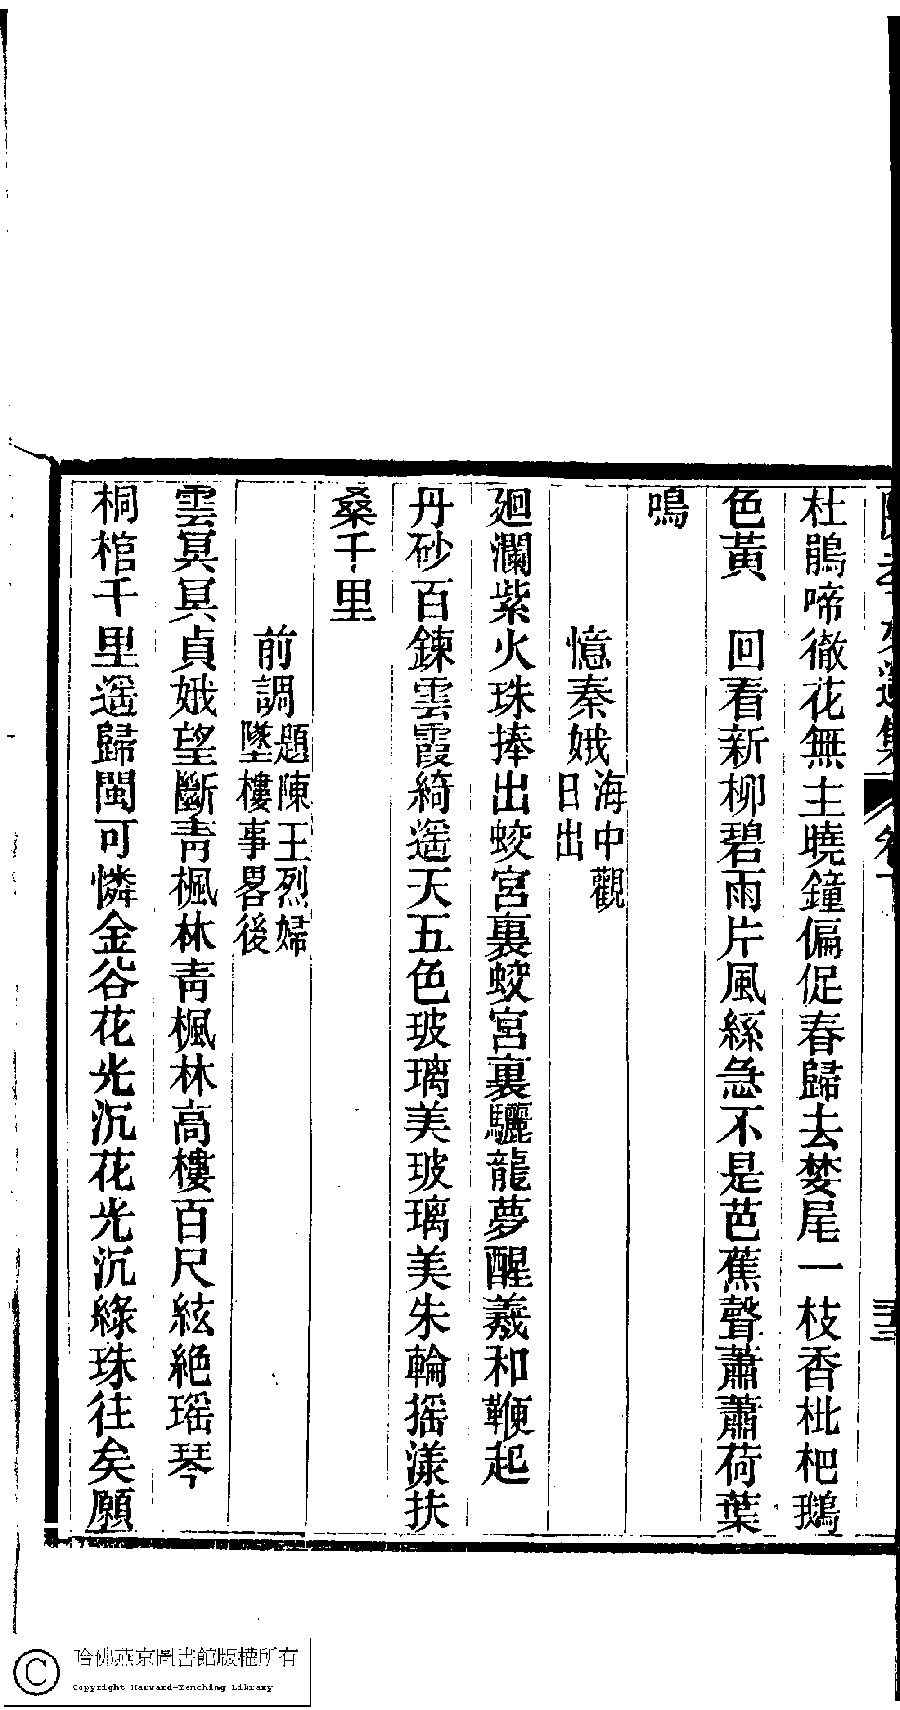 杜鵑啼徹花無主曉鐘偏促春歸去婪尾一枝香枇杷鵝
色黃　回看新柳碧雨片風絲急不是芭蕉聲蕭蕭荷葉
鳴
憶秦娥海中觀日出
廻瀾紫火珠捧出蛟宮裏蛟宮裏驪龍夢醒羲和鞭起
丹砂百鍊雲霞綺遥天五色玻璃美玻璃美朱輪摇漾扶
桑千里
前調題陳王烈婦墜樓事畧後
雲冥冥貞娥望斷靑楓林靑楓林高樓百尺絃絶瑶琴
桐棺千里遥歸閩可憐金谷花光沉花光沉綠珠往矣願
哈佛燕京圖書館版權所有
Copyright Harvard-Yenching Library